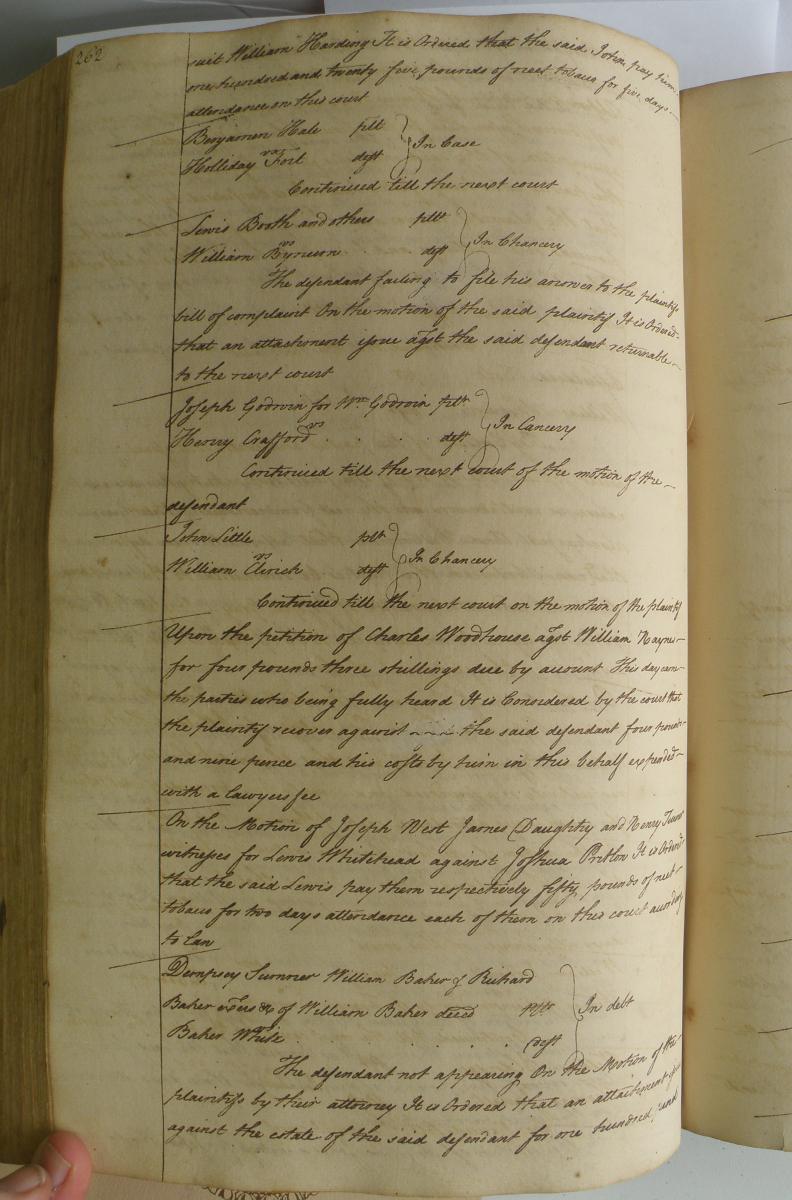 262
suit William Harding It is Ordered that the said John pay him
one hundred and twenty five pounds of neet tobacco for five days
attendance on this court
Benjamen Hale plt
vs In Case
Holliday Fort deft
Continued till the next court
Lewis Booth and others pltt
vs In Chancery
William Bynum deft
The defendant failing to file his answer to the plaintifs
bill of complaint On the motion of the said plaintif It is Ordered
that an attachment issue agst the said defendant returnable
to the next court
Joseph Godwin for Wm Godwin plt
vs In Cancery
Henry Crafford deft
Continued till the next court of the motion of the
defendant
John Little plt
vs In Chancery
William deft
Continued till the next court on the motion of the plaintif
Upon the petition of Charles Woodhouse agst William
for four pounds three shillings due by account This day came
the parties who being fully heard It is Considered by the court that
the plaintif recover against the said defendant four pounds
and nine pence and his costs by him in this behalf expended
with a lawyers fee
On the Motion of Joseph West James Daughtry and Henry
witnesses for Lewis Whitehead against Joshua It is Ordered
that the said Lewis pay them respectively fifty pounds of neet
tobacco for two days attendance each of them on this court according
to Law
Dempsey Sumner William Baker & Richard
Baker exers &c of William Baker deced pltts In debt
vs
Baker White deft
The defendant not appearing On the Motion of the
plaintifs by their attorney It is Ordered that an attachment
against the estate of the said defendant for one hundred and